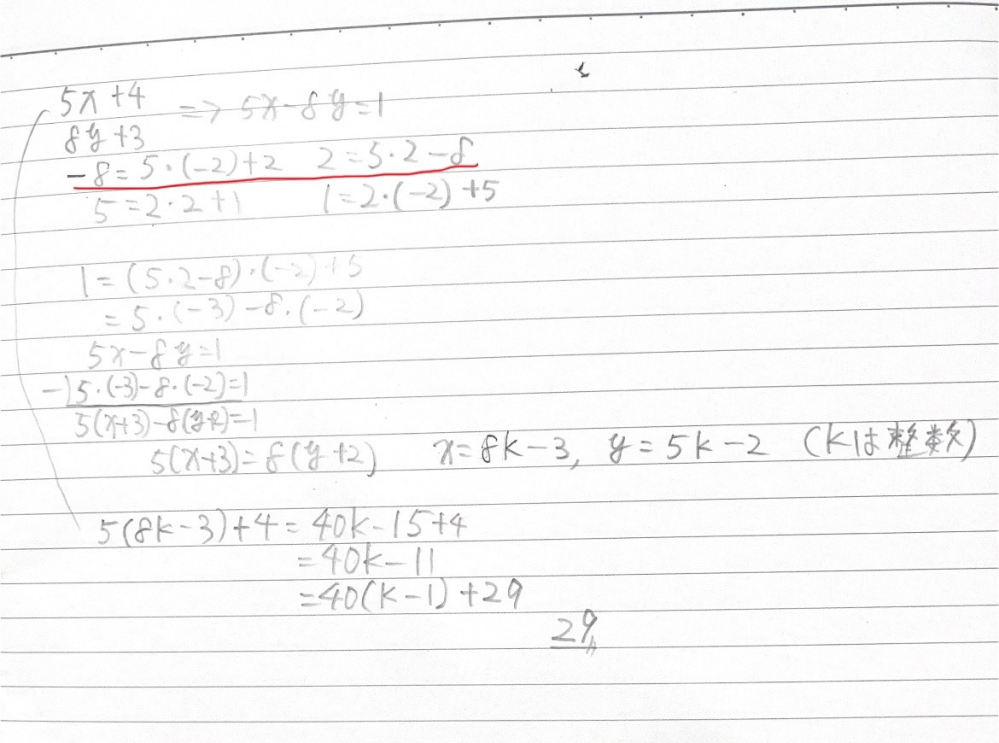 5x+4
8y+3 => 5x-8y=1
-8=5・(-2)+2 2=5・2-8
5=2・2+1 1=2・(-2)+5
1=(5・2-8)・(-2)+5
=5・(-3)-8・(-2)
5x-8y=1
-)5・(-3)-8・(-2)=1
5(x+3)-8(y+2)=1
5(x+3)=8(y+2) x=8k-3, y=5k-2 (kは整数)
5(8k-3)+4=40k-15+4
=40k-11
=40(k-1)+29
29